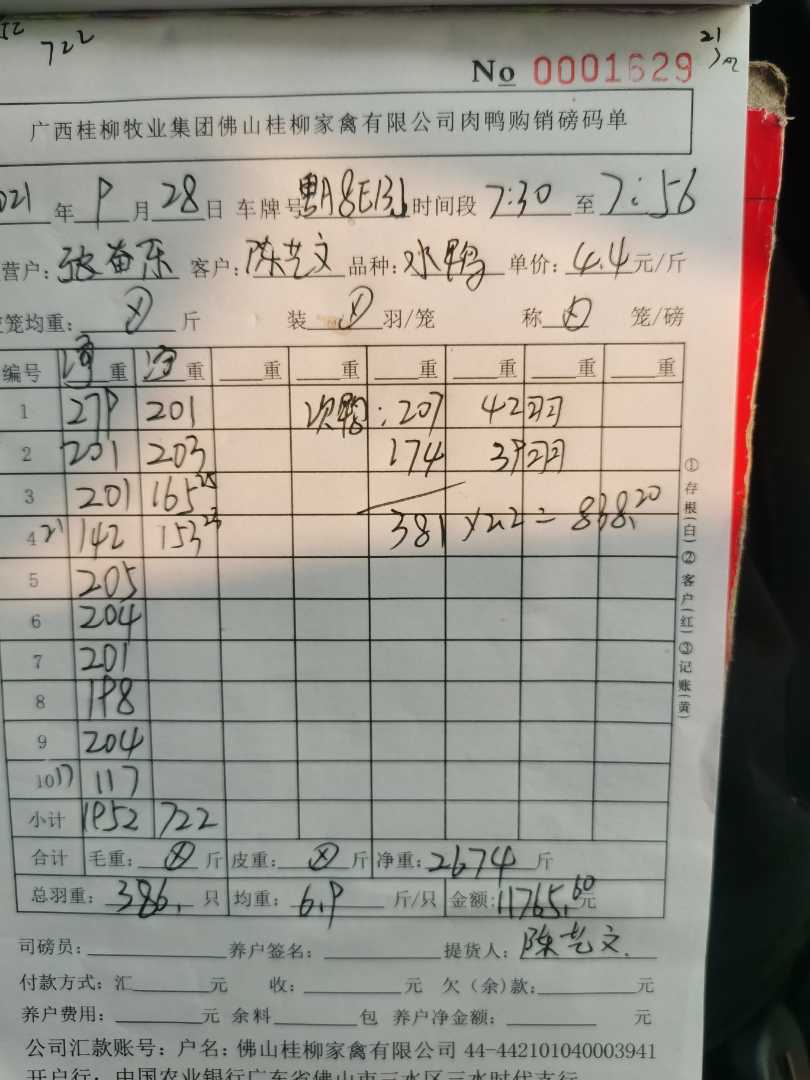 722
21
No 0001629
广西桂柳牧业集团佛山桂柳家禽有限公司肉鸭购销磅码单
021 年 9 月 28 日 车牌号 时间段 7:30 至 7:56
营户: 客户: 陈艺文 品种: 水鸭 单价: 4.4 元/斤
笼均重: 斤 装 羽/笼 称 笼/磅
编号 净重 净重 重 重 重 重 重 重
1 279 201 次鸭: 207 42羽
2 201 203 174 39羽
3 201 165 25 
4 21 142 153 23 381 ×2.2 = 838.20
5 205
6 204
7 201
8 198
9 204
10 17 117
小计 1952 722
合计 毛重: 斤 皮重: 斤 净重: 2674 斤
总羽重: 386. 只 均重: 6.9 斤/只 金额: 11765.60 元
司磅员: 养户签名: 提货人: 陈艺文.
付款方式: 汇 元 收: 元 欠(余)款: 元
养户费用: 元 余料 包 养户净金额: 元
公司汇款账号: 户名: 佛山桂柳家禽有限公司 44-442101040003941
开户行: 中国农业银行广东省佛山市三水区三水时代支行
①存根(白)②客户(红)③记账(黄)